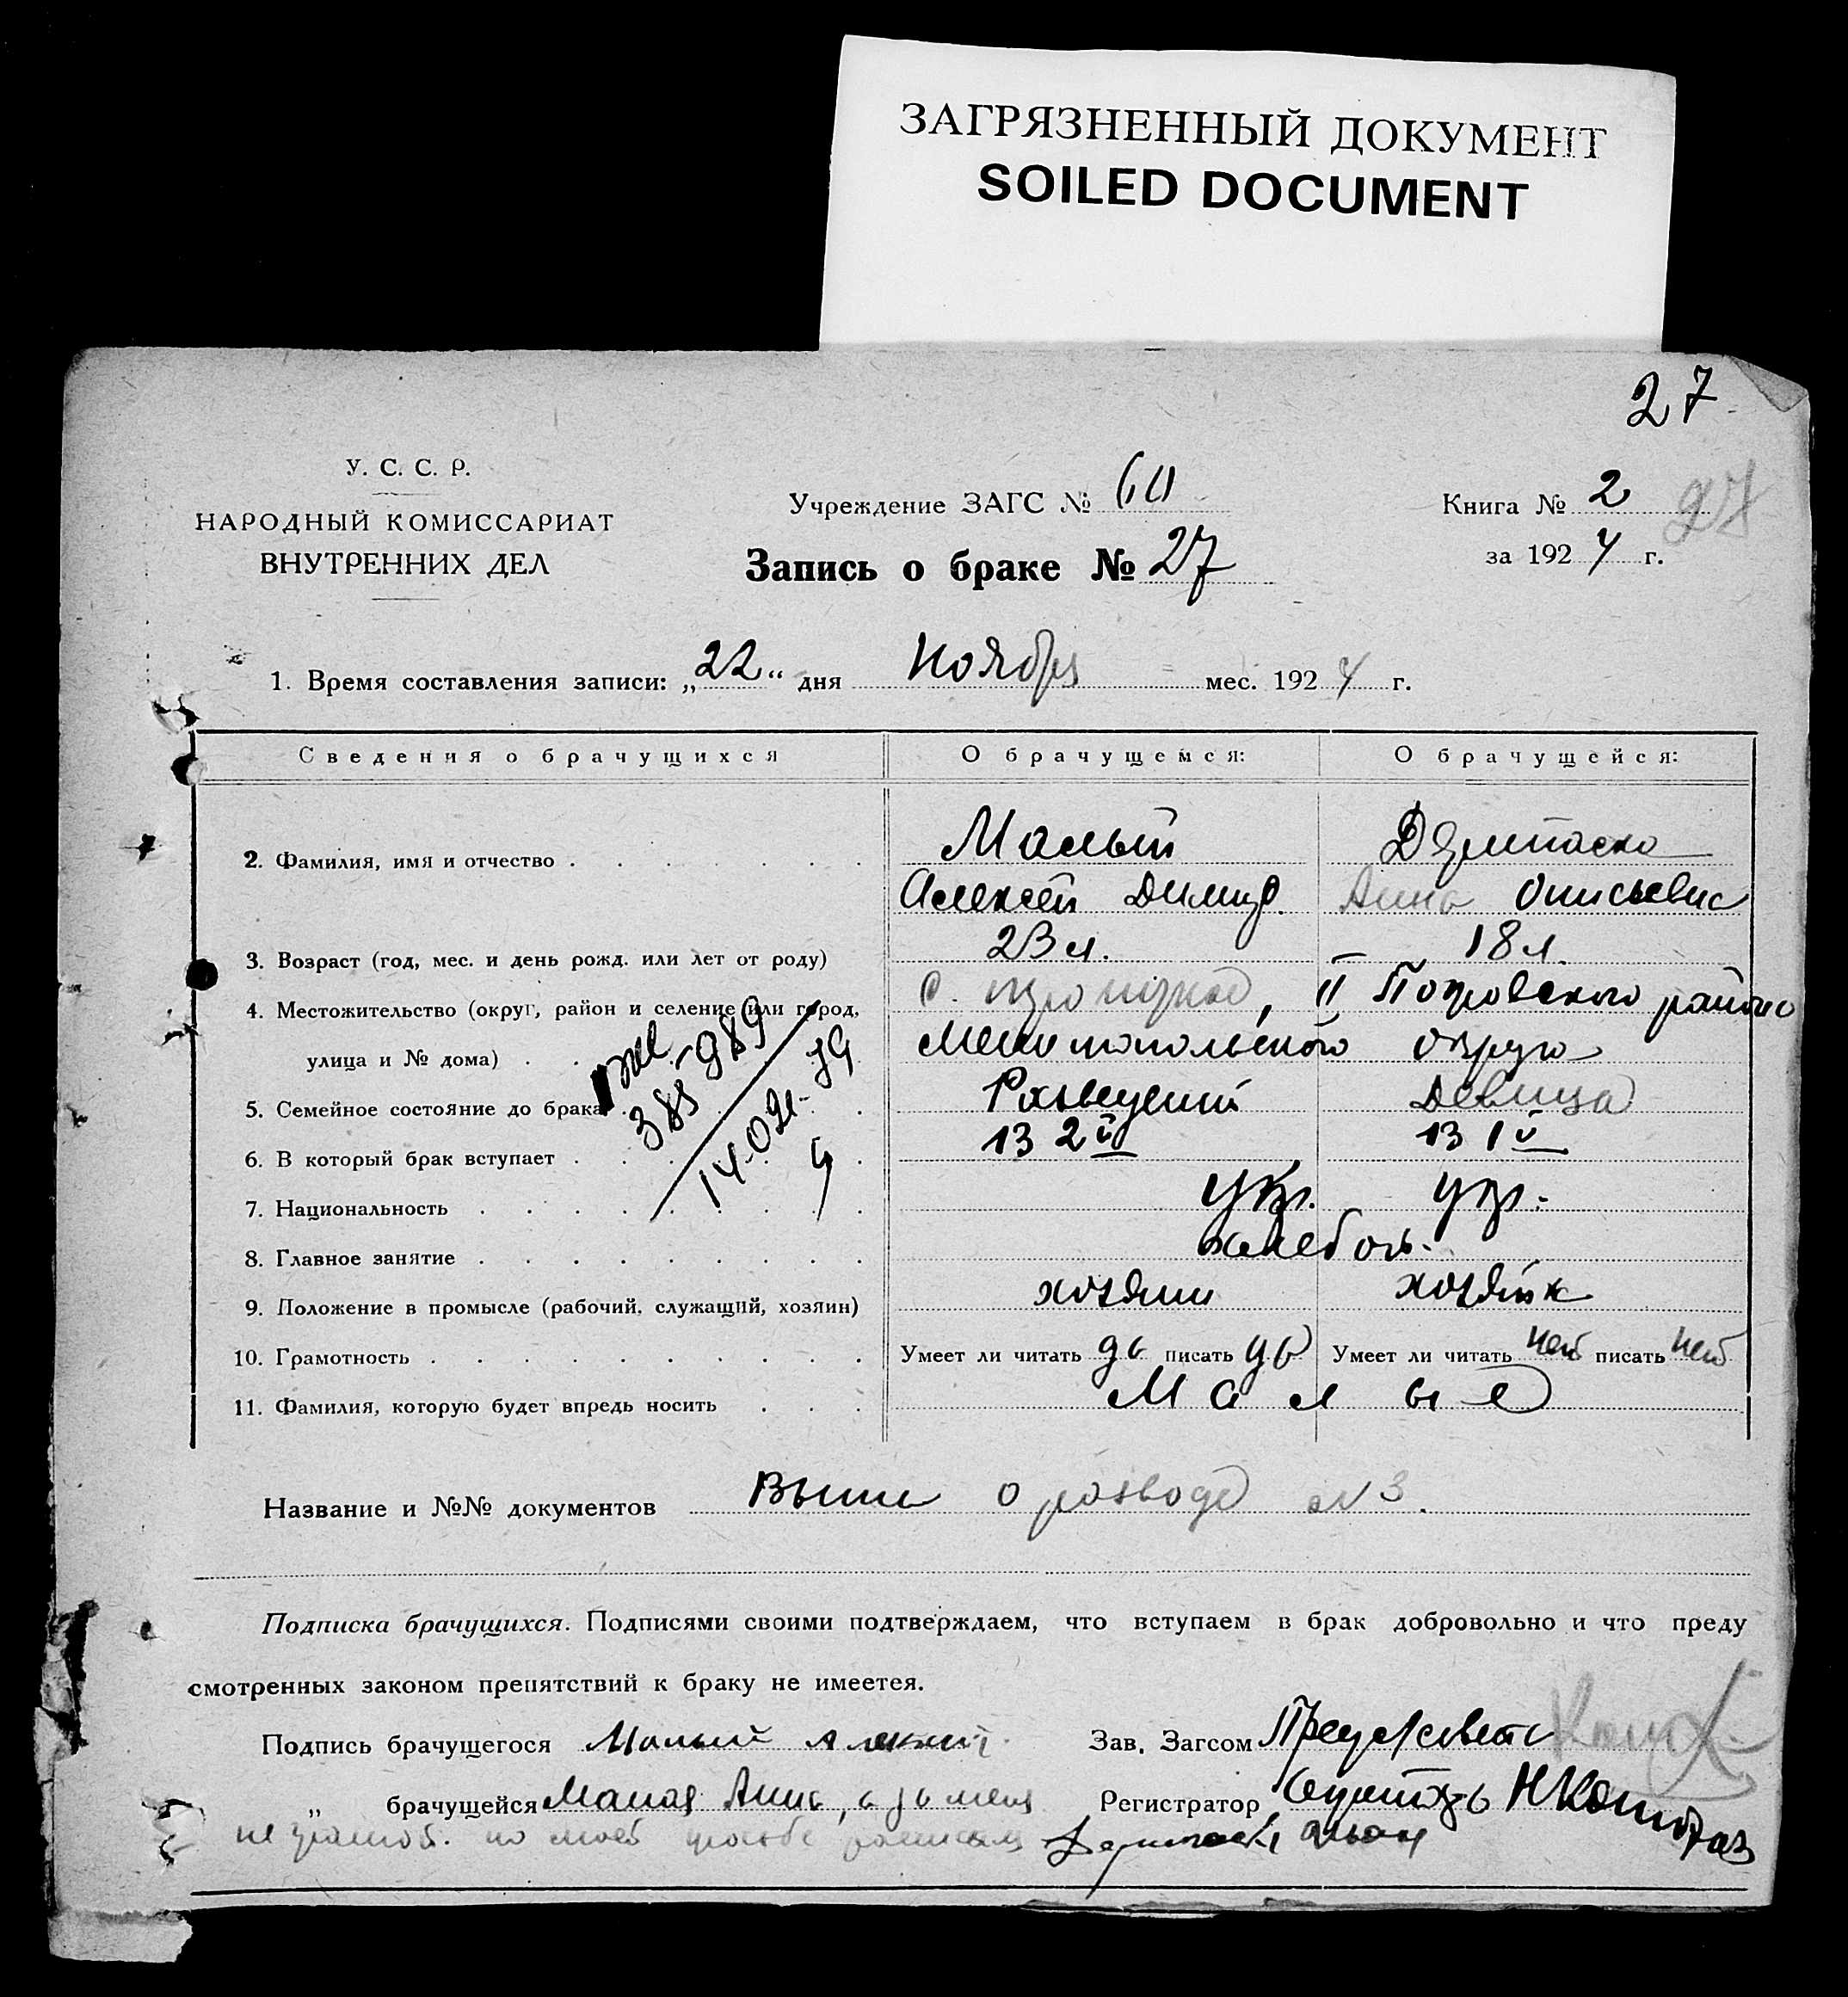 ЗАГРЯЗНЕННЫЙ ДОКУМЕНТ
SOILED DOCUMENT
27
У. С. С. Р.
НАРОДНЫЙ КОМИССАРИАТ
ВНУТРЕННИХ ДЕЛ
Учреждение ЗАГС №
Запись о браке № 27
Книга № 2 27
за 1924 г.
1. Время составления записи: „22“ дня Ноября мес. 1924 г.
Сведения о брачущихся О брачущемся: О брачущейся:
2. Фамилия, имя и отчество Малый
Алексей Димитр. Анна
3. Возраст (год, мес. и день рожд. или лет от роду) 23 л. 18 л.
4. Местожительство (округ, район и селение или город, с. II Покровского района
улица и № дома) Мелитопольского округа
5. Семейное состояние до брака Разведенный Девица
6. В который брак вступает в 2й в 1й
7. Национальность укр. укр.
8. Главное занятие хлебоп.
9. Положение в промысле (рабочий, служащий, хозяин) хозяин хозяйк
10. Грамотность Умеет ли читать да писать да Умеет ли читать нет писать нет
11. Фамилия, которую будет впредь носить Малые
385-989
14-02г-79
Название и №№ документов о разводе № 3.
Подписка брачущихся. Подписями своими подтверждаем, что вступаем в брак добровольно и что преду
смотренных законом препятствий к браку не имеется.
Подпись брачущегося Малый Алексей Зав. Загсом
„ брачущейся Малая Анна, а за меня Регистратор
неграмот. по моей просьбе